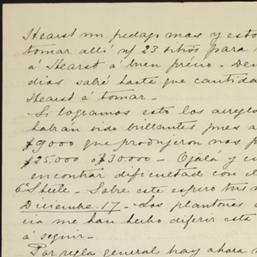 Hearst un pedago mas y esto
tomar alli n/ 23 sitios para
á Hearst á buen précio. Den
dias sabré hasta que cantida
Hearst á tomar.-
-Si logramos esto los arregl
habran sido brillantes pues a
$9000 que produjeron nos p
$25.000 o $30000.- Ojalá y u
encontrar dificultad con el
Steele.- Sobre este espero tus
Diciembre 17.- Los plantones
cia me han hecho diferir esta
á seguir.-
Por regla general hay ahora